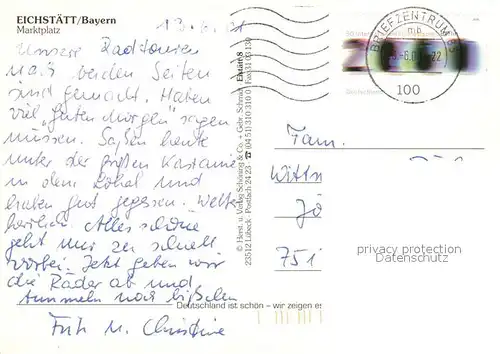 EICHSTÄTT/Bayern
Marktplatz
13.6.01
Unsere Radtouren
nach beiden Seiten
sind gemacht. Haben
viel "guten Morgen" sagen
müssen. Saßen heute
unter der großen Kastanie
in dem Lokal und
haben gut gegessen. Wetter
herrlich. Alles schöne
geht nur zu schnell
vorbei. Jetzt geben wir
die Räder ab und
bummeln noch bißchen
Fritz u. Christine
© Herst. u. Verlag Schöning & Co. + Gebr. Schmidt
23512 Lübeck · Postfach 24 23 · ☎ (04 51) 310 310
Deutschland ist schön – wir zeigen es
BRIEFZENTRUM 85
mb
100
Fam.
Wittm
Jo
751
privacy protection
Datenschutz